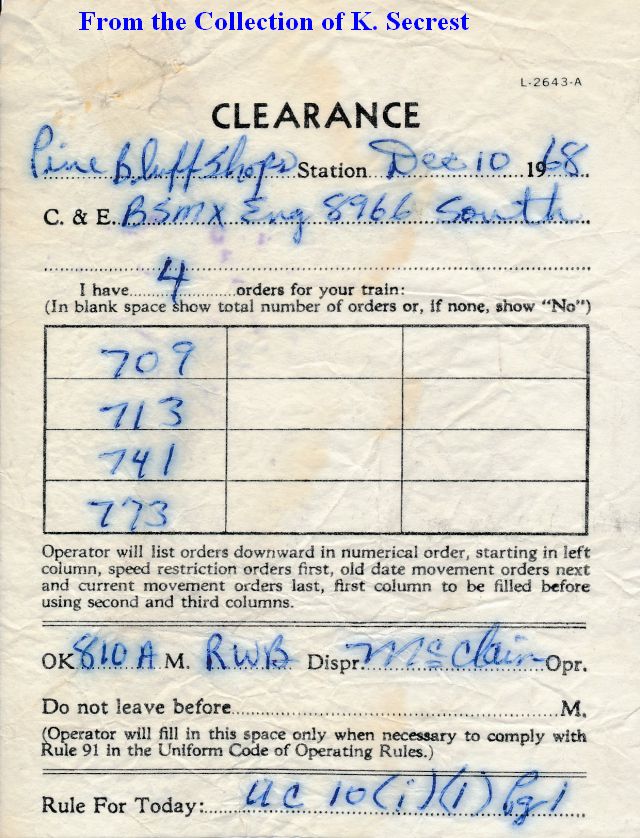 From the Collection of K. Secrest
L-2643-A
CLEARANCE
Pine Bluff Shops Station Dec 10 1968
C. & E. BSMX Eng 8966 South
I have 4 orders for your train:
(In blank space show total number of orders or, if none, show “No”)
709
713
741
773
Operator will list orders downward in numerical order, starting in left
column, speed restriction orders first, old date movement orders next
and current movement orders last, first column to be filled before
using second and third columns.
OK 810 A M. RWB Dispr. McClain Opr.
Do not leave before M.
(Operator will fill in this space only when necessary to comply with
Rule 91 in the Uniform Code of Operating Rules.)
Rule For Today: UC 10(i)(1) Pg 1